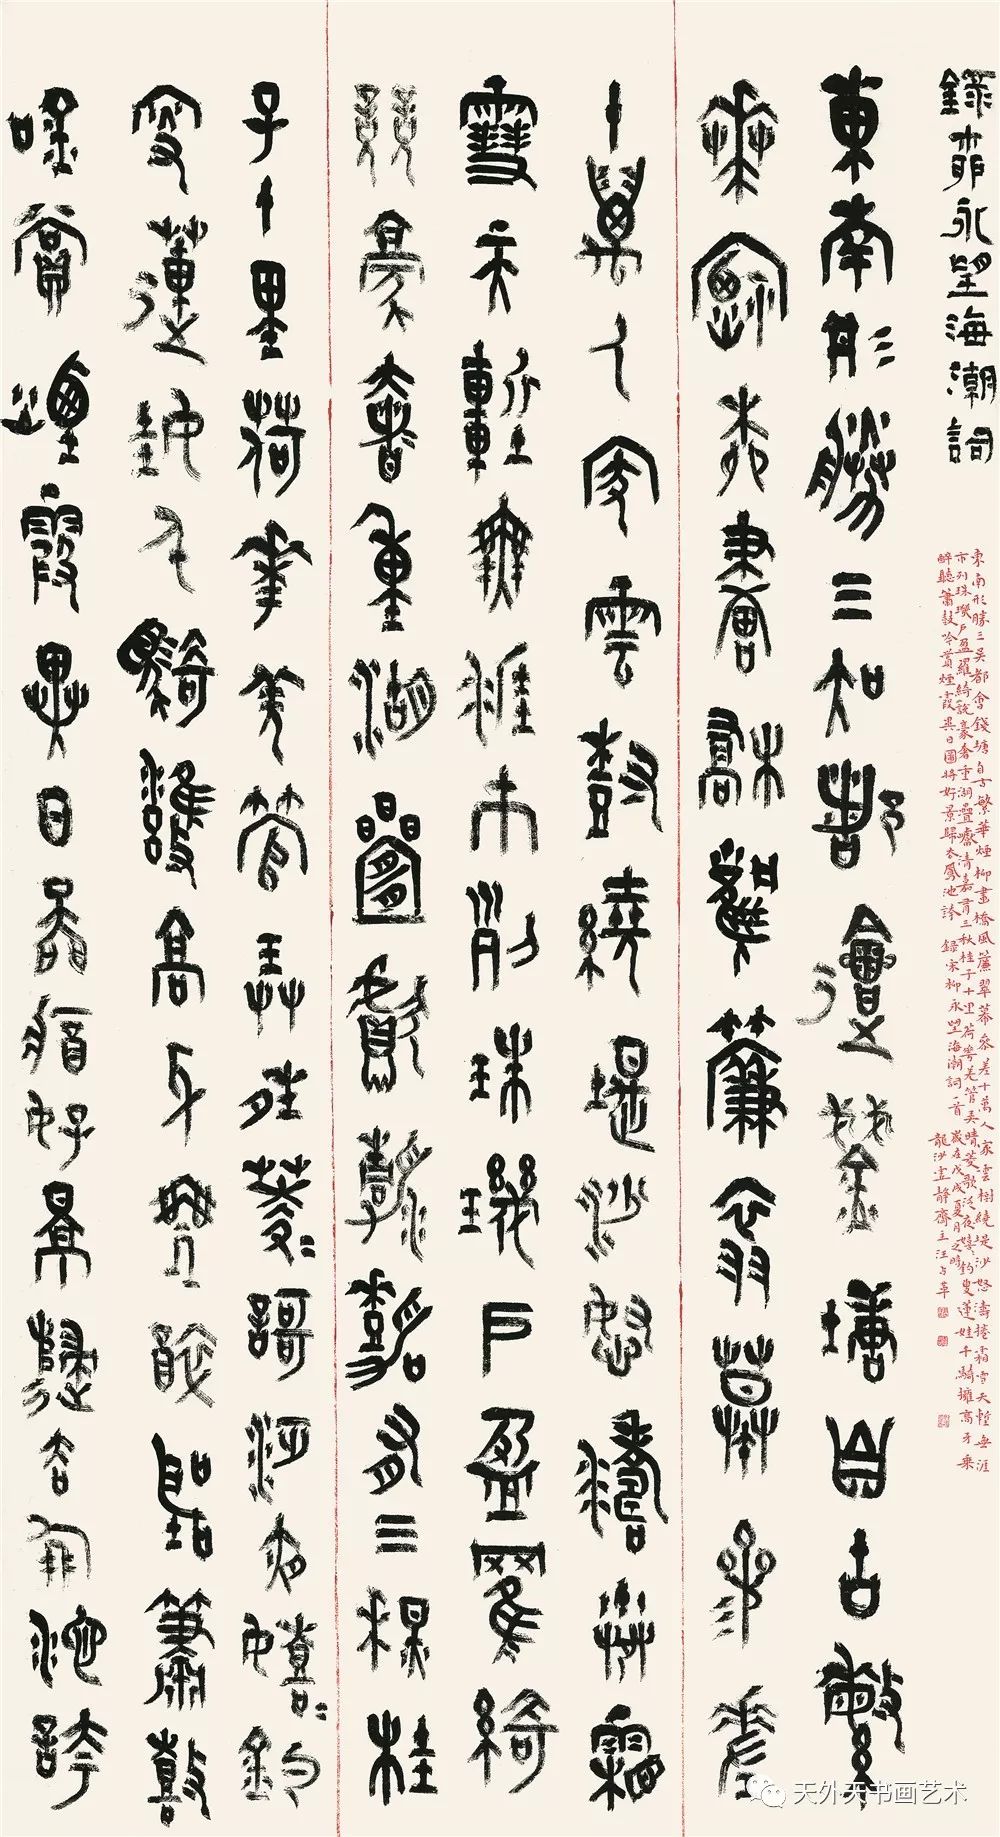 錄柳永望海潮詞
東南形勝三吳都會錢塘自古繁
華煙柳畫橋風簾翠幕參差
十萬人家雲樹繞堤沙怒濤捲霜
雪天塹無涯市列珠璣戶盈羅綺
競豪奢重湖疊巘清嘉有三秋桂
子十里荷花羌管弄晴菱歌泛夜嬉嬉釣
叟蓮娃千騎擁高牙乘醉聽簫鼓
吟賞煙霞異日圖將好景歸去鳳池誇
東南形勝三吳都會錢塘自古繁華煙柳畫橋風簾翠幕參差十萬人家雲樹繞堤沙怒濤捲霜雪天塹無涯
市列珠璣戶盈羅綺競豪奢重湖疊巘清嘉有三秋桂子十里荷花羌管弄晴菱歌泛夜嬉嬉釣叟蓮娃千騎擁高牙乘
醉聽簫鼓吟賞煙霞異日圖將好景歸去鳳池誇 錄宋柳永望海潮詞一首 歲在戊戌夏月之時
龍沙 靜齋主汪占革
天外天书画艺术